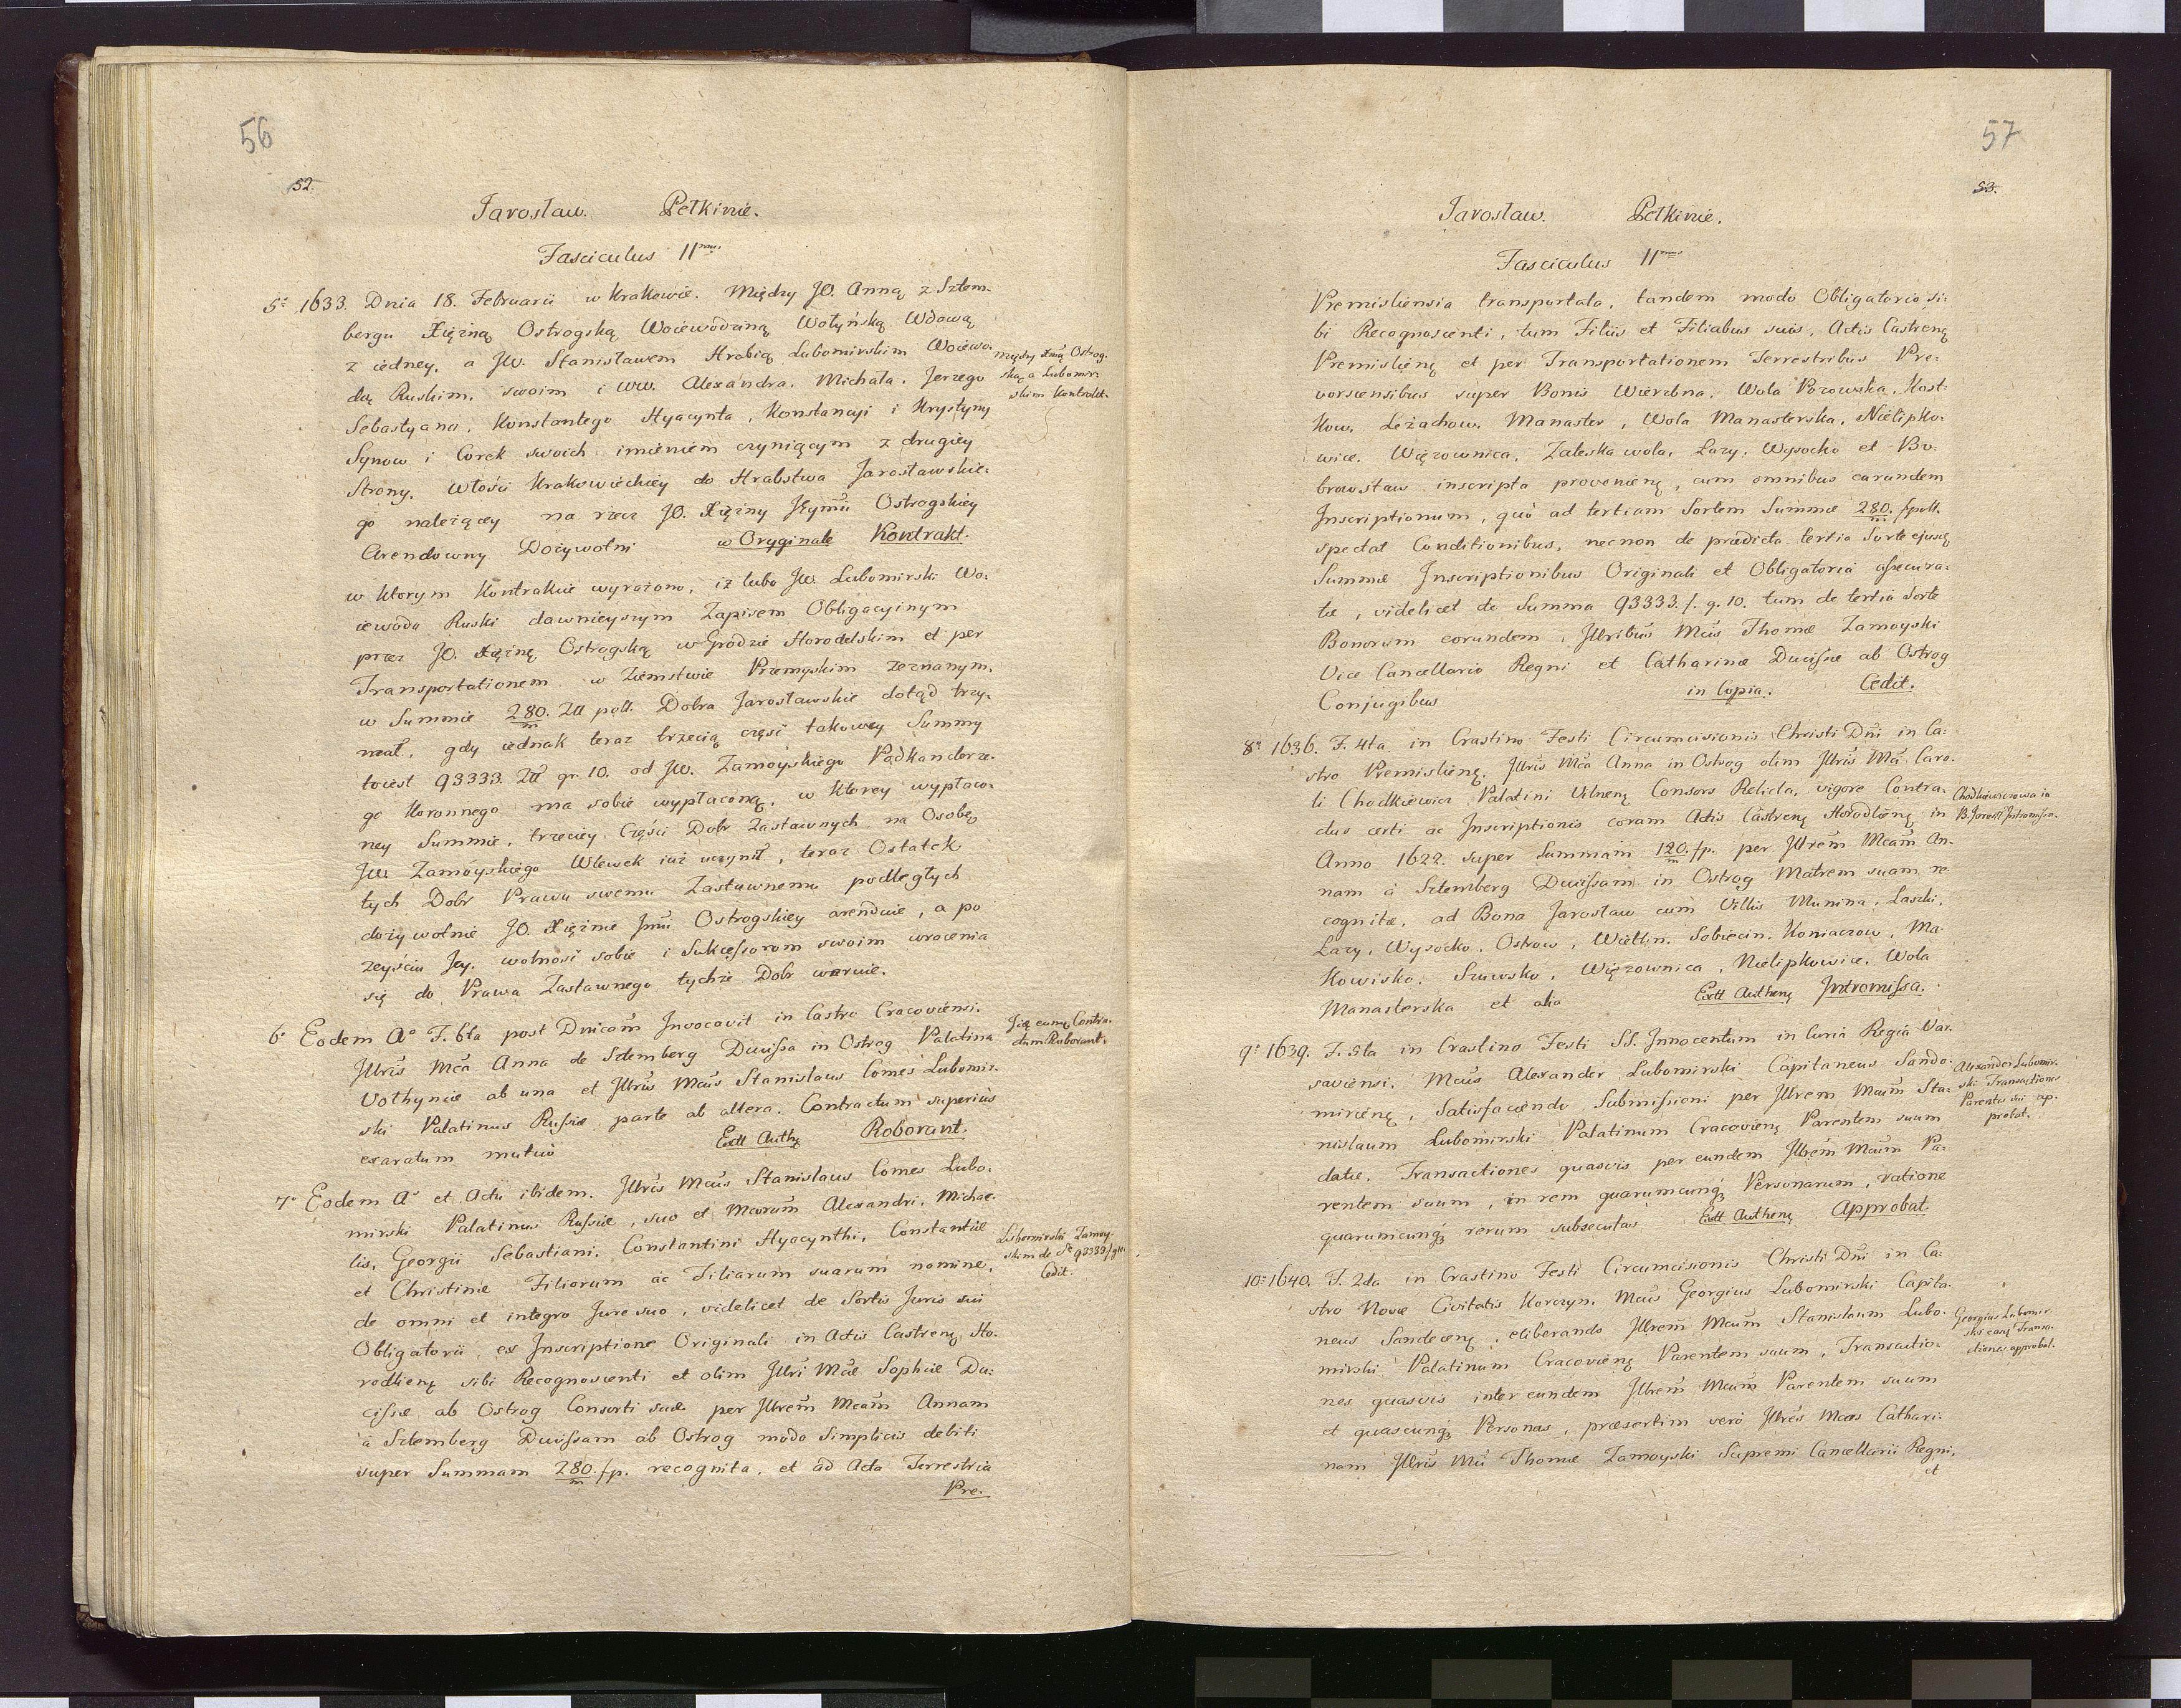 56
52.
Jarosław. Pełkinie.
Fasciculus 11mus
5º 1633. Dnia 18. Februarii w Krakowie. Między JO. Anną z Sztem-
bergu Xiężną Ostrogską Woiewodziną Wołyńską Wdową
z iedney, a JW. Stanisławem Hrabią Lubomirskim Woiewo-
dą Ruskim, swoim i WW. Alexandra, Michała, Jerzego
Sebastyana, Konstantego Hyacynta, Konstancyi i Krystyny
Synow i Corek swoich imieniem czyniącym z drugiey
Strony. Włości Krakowieckiey do Hrabstwa Jarosławskie-
go należącey na rzecz JO. Xiężny Jeymci Ostrogskiey
Arendowny Dożywotni w Oryginale Kontrakt.
między Xną Ostrog-
ską a Lubomir-
skim Kontrakt.
w ktorym Kontrakcie wyrażono, iż lubo JW. Lubomirski Wo-
iewoda Ruski dawnieyszym Zapisem Obligacyinym
przez JO. Xiężnę Ostrogską w Grodzie Horodelskim et per
Transportationem w Ziemstwie Przemyskim zeznanym,
w Summie 280. m Zll poll. Dobra Jarosławskie dotąd trzy-
mał, gdy iednak teraz trzecią część takowey Summy
toiest 93333. Zll gr. 10. od JW. Zamoyskiego Podkanclerze-
go Koronnego ma sobie wypłaconą, w ktorey wypłaco-
ney Summie, trzeciey Części Dobr Zastawnych na Osobę
JW. Zamoyskiego Wlewek iuż uczynił, teraz Ostatek
tych Dobr Prawu swemu Zastawnemu podległych
dożywotnie JO. Xiężnie Jmci Ostrogskiey arenduie, a po
zeyściu Jey, wolność sobie i Sukcessorom swoim wrocenia
się do Prawa Zastawnego tychże Dobr waruie.
6º Eodem Aº F. 6ta post Dnicam Invocavit in Castro Cracoviensi.
Illris Mca Anna de Sztemberg Ducissa in Ostrog Palatina
Volhyniæ ab una et Illris Mcus Stanislaus Comes Lubomir-
ski Palatinus Russiæ parte ab altera. Contractum superius
exaratum mutuo Extt Authę Roborant.
Iidę eumę Contra-
ctum Roborant.
7º Eodem Aº et Actu ibidem. Illris Mcus Stanislaus Comes Lubo-
mirski Palatinus Russiæ, suo et Mcorum Alexandri, Michae-
lis, Georgii Sebastiani, Constantini Hyacynthi, Constantiæ
et Christinæ Filiorum ac Filiarum suarum nomine,
de omni et integro Jure suo, videlicet de Sortis Juris sui
Obligatorii ex Inscriptione Originali in Actis Castrenę Ho-
rodlienę sibi Recognoscenti et olim Illri Mcæ Sophiæ Du-
cissæ ab Ostrog Consorti suæ per Illrem Mcam Annam
à Sztemberg Ducissam ab Ostrog modo Simplicis debiti
super Summam 280. m fp. recognita, et ad Acta Terrestria
Pre-
Lubomirski Zamoy-
skim de Sª 93333 f g 10
Cedit.
57
53.
Jarosław. Pełkinie.
Fasciculus 11mus
Premisliensia transportata, tandem modo Obligatorio si-
bi Recognoscenti, tum Filiis et Filiabus suis, Actis Castrenę
Premislienę et per Transportationem Terrestribus Pre-
vorscensibus super Bonis Wierzbna, Wola Pozowska, Kost-
kow, Leżachow, Manaster, Wola Manasterska, Nielipko-
wice, Więzownica, Zaleska wola, Łazy, Wysocko et Bo-
browstaw inscripta provenienę, cum omnibus earundem
Inscriptionum, quò ad tertiam Sortem Summæ 280. m fpoll.
spectat Conditionibus, necnon de prædicta tertia Sorte ejusdę
Summæ Inscriptionibus Originali et Obligatoria assecura-
tæ, videlicet de Summa 93333. f. g. 10. tum de tertia Sorte
Bonorum eorundem, Illribus Mcis Thomæ Zamoyski
Vice Cancellario Regni et Catharinæ Ducissæ ab Ostrog
Conjugibus in Copia. Cedit.
8º 1636. F. 4ta in Crastino Festi Circumcisionis Christi Dni in Ca-
stro Premislienę. Illris Mca Anna in Ostrog olim Illris Mci Caro-
li Chodkiewicz Palatini Vilnenę Consors Relicta, vigore Contra-
ctus certi ac Inscriptionis coram Actis Castrenę Horodlienę in
Anno 1622. super Summam 120. m fp. per Illrem Mcam An-
nam à Sztemberg Ducissam in Ostrog Matrem suam re-
cognitæ, ad Bona Jarosław cum Villis Munina, Laszki,
Łazy, Wysocko, Ostrow, Wietlin, Sobiecin, Koniaczow, Ma-
kowisko, Szowsko, Więzownica, Nielipkowice, Wola
Manasterska et alia Extt Authenę Intromissa.
Chodkiewiczowa in
B. Jarosł Intromissa.
9º 1639. F. 5ta in Crastino Festi SS. Innocentum in Curia Regia Var-
saviensi. Mcus Alexander Lubomirski Capitaneus Sando-
mirienę, Satisfaciendo Submissioni per Illrem Mcum Sta-
nislaum Lubomirski Palatinum Cracovienę Parentem suum
datæ. Transactiones quasvis per eundem Illrem Mcum Pa-
rentem suum, in rem quarumcunq; Personarum, ratione
quarumcunq; rerum subsecutas Extt Authenę Approbat.
Alexander Lubomir-
ski Transactiones
Parentis sui ap-
probat.
10º 1640. F. 2da in Crastino Festi Circumcisionis Christi Dni in Ca-
stro Novæ Civitatis Korczyn. Mcus Georgius Lubomirski Capita-
neus Sandecenę, eliberando Illrem Mcum Stanislaum Lubo-
mirski Palatinum Cracovienę Parentem suum, Transactio-
nes quasvis inter eundem Illrem Mcum Parentem suum
et quascunq; Personas, præsertim verò Illres Mcos Cathari-
nam Illris Mci Thomæ Zamoyski Supremi Cancellarii Regni,
et
Georgius Lubomir-
ski easę Transa-
ctiones approbat.